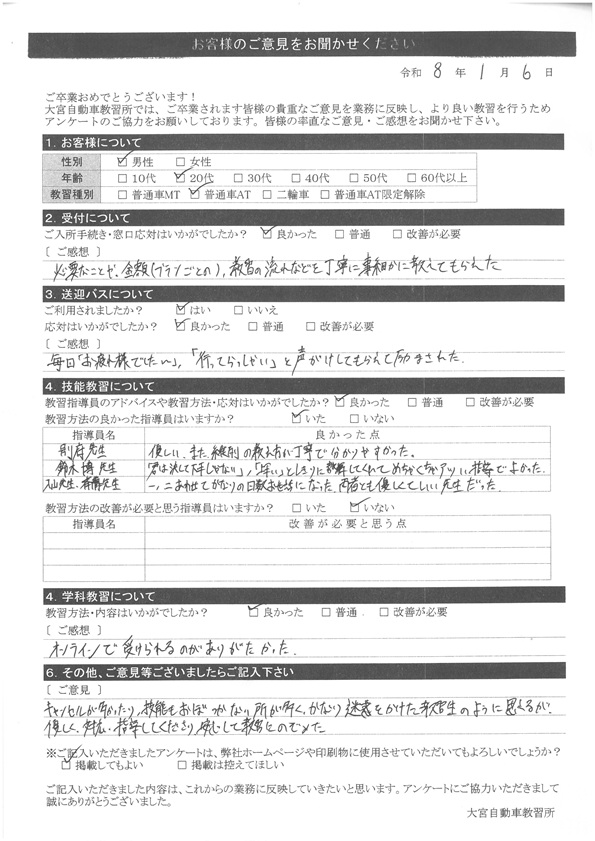 お客様のご意見をお聞かせください
令和 8 年 1 月 6 日
ご卒業おめでとうございます！
大宮自動車教習所では、ご卒業されます皆様の貴重なご意見を業務に反映し、より良い教習を行うため
アンケートのご協力をお願いしております。皆様の率直なご意見・ご感想をお聞かせ下さい。
1. お客様について
性別 ☑男性 □女性
年齢 □10代 ☑20代 □30代 □40代 □50代 □60代以上
教習種別 □普通車MT ☑普通車AT □二輪車 □普通車AT限定解除
2. 受付について
ご入所手続き・窓口応対はいかがでしたか？ ☑良かった □普通 □改善が必要
〔 ご感想 〕
必要なことや、金額(プランごとの)、教習の流れなどを丁寧に事細かに教えてもらえた
3. 送迎バスについて
ご利用されましたか？ ☑はい □いいえ
応対はいかがでしたか？ ☑良かった □普通 □改善が必要
〔 ご感想 〕
毎日「お疲れ様でした〜」、「行ってらっしゃい」と声がけしてもらえて励まされた.
4. 技能教習について
教習指導員のアドバイスや教習方法・応対はいかがでしたか？ ☑良かった □普通 □改善が必要
教習方法の良かった指導員はいますか？ ☑いた □いない
指導員名 良かった点
別府先生 優しい. また. 線別の教え方が丁寧で分かりやすかった。
鈴木 先生 「君は決して下手じゃない」, てくれてめちゃくちゃアツい指導でよかった.
先生. 先生 かなりの日数お世話になった. 両者とも優しくて 先生だった.
教習方法の改善が必要と思う指導員はいますか？ □いた ☑いない
指導員名 改善が必要と思う点
4. 学科教習について
教習方法・内容はいかがでしたか？ ☑良かった □普通 □改善が必要
〔 ご感想 〕
オンラインで受けられるのがありがたかった.
6. その他、ご意見等ございましたらご記入下さい
〔 ご意見 〕
キャンセルが多かったり, 技能もおぼつかない所が多く, かなり迷惑をかけた教習生のように思えるが,
優しく. 対応・指導してくださり 安心して教習にのぞめた
※ご記入いただきましたアンケートは、弊社ホームページや印刷物に使用させていただいてもよろしいでしょうか？
☑掲載してもよい □掲載は控えてほしい
ご記入いただきました内容は、これからの業務に反映していきたいと思います。アンケートにご協力いただきまして
誠にありがとうございました。
大宮自動車教習所